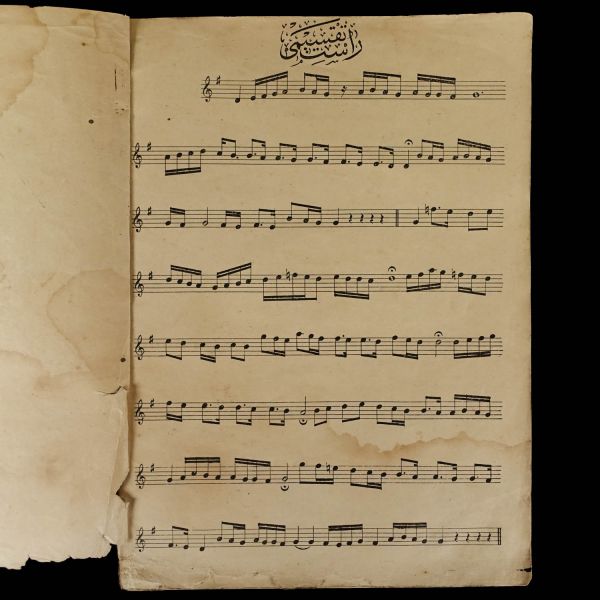 راست تقسيمى